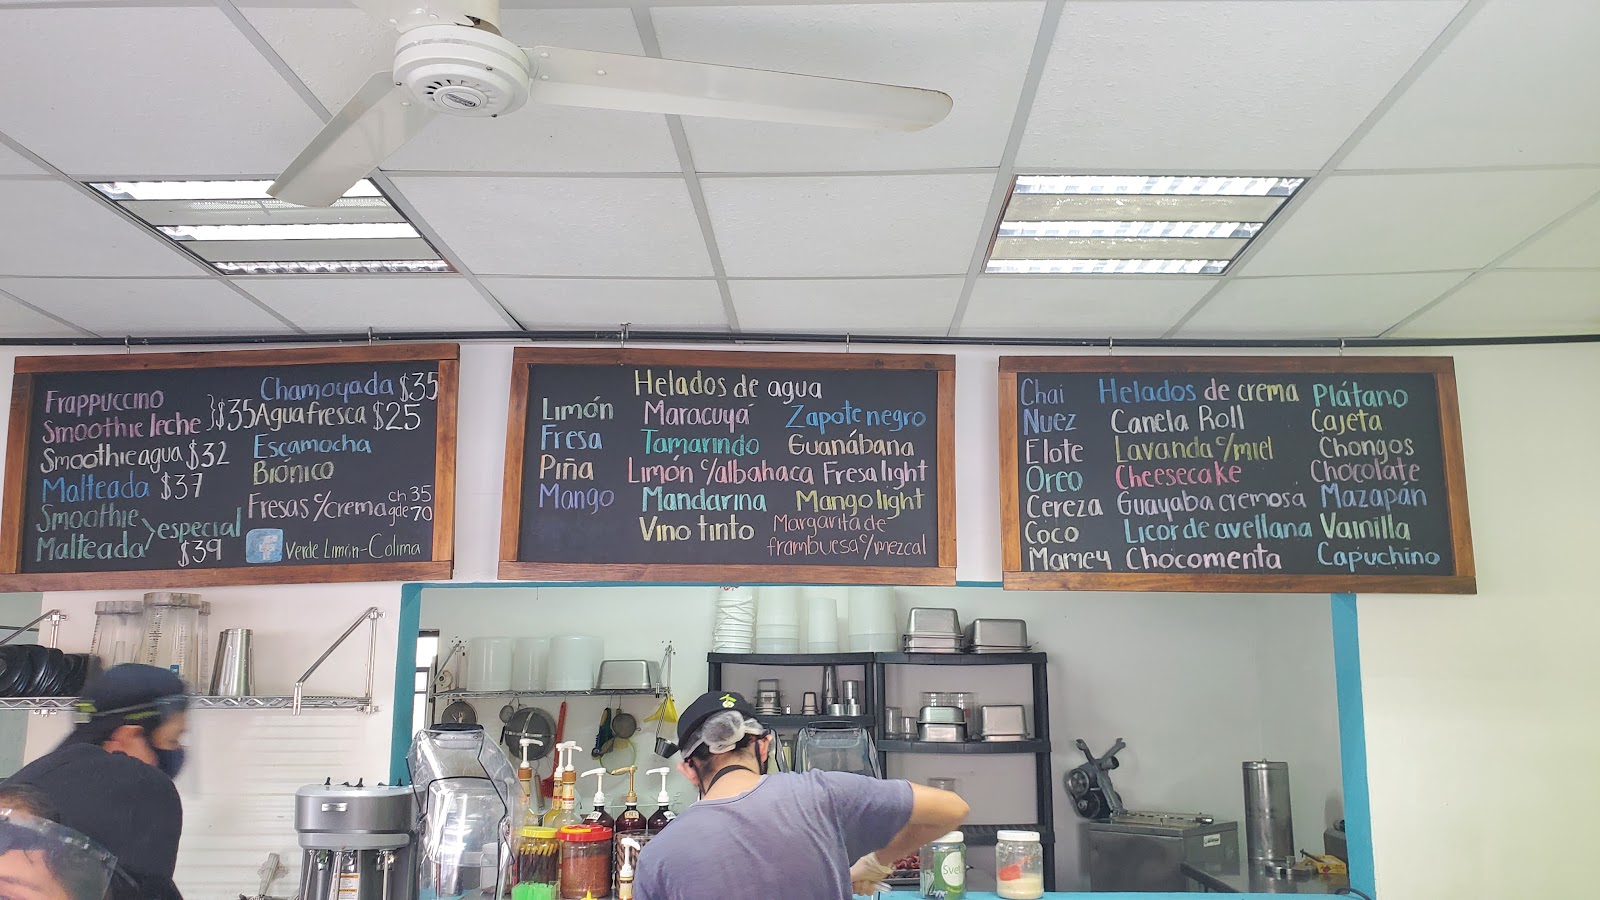 Frappuccino
Smoothie leche }$35
Smoothie agua $32
Malteada $37
Smoothie
Malteada > especial
$39
Chamoyada $35
Agua fresca $25
Escamocha
Biónico
Fresas c/crema ch 35
gde 70
f Verde Limón-Colima
Helados de agua
Limón Maracuyá Zapote negro
Fresa Tamarindo Guanábana
Piña Limón c/albahaca Fresa light
Mango Mandarina Mango light
Vino tinto Margarita de
frambuesa c/mezcal
Chai Helados de crema Plátano
Nuez Canela Roll Cajeta
Elote Lavanda c/miel Chongos
Oreo Cheesecake Chocolate
Cereza Guayaba cremosa Mazapán
Coco Licor de avellana Vainilla
Mamey Chocomenta Capuchino
Svet